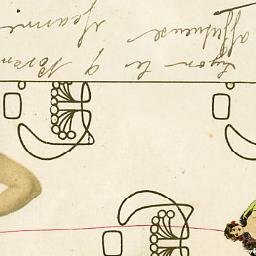 Lyon le 9 Novem
affectueuse Jeanne